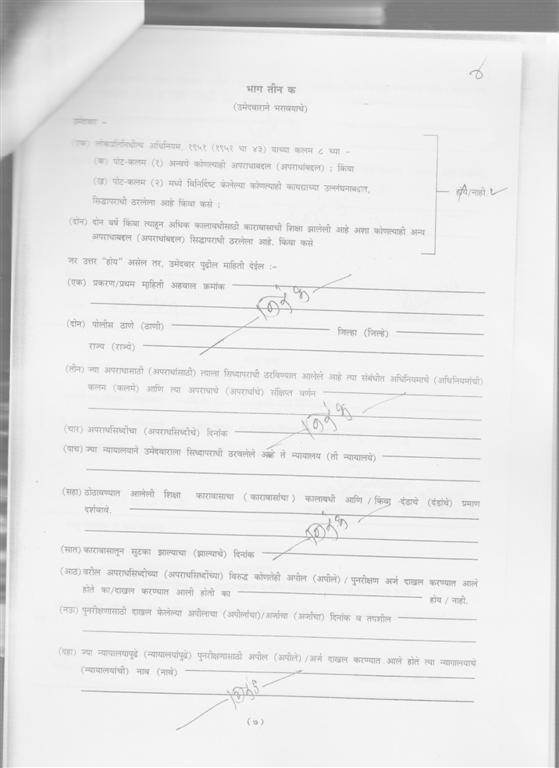 ४
भाग तीन क
(उमेदवाराने भरावयाचे)
उमेदवार -
(एक) लोकप्रतिनिधीत्व अधिनियम, १९५१ (१९५१ चा ४३) याच्या कलम ८ च्या -
(क) पोट-कलम (१) अन्वये कोणत्याही अपराधाबद्दल (अपराधांबद्दल) ; किंवा
(ख) पोट-कलम (२) मध्ये विनिर्दिष्ट केलेल्या कोणत्याही कायद्याच्या उल्लंघनाबद्दल,
होय/नाही.
सिद्धापराधी ठरलेला आहे किंवा कसे ;
(दोन) दोन वर्षे किंवा त्याहून अधिक कालावधीसाठी कारावासाची शिक्षा झालेली आहे अशा कोणत्याही अन्य
अपराधाबद्दल (अपराधांबद्दल) सिद्धापराधी ठरलेला आहे. किंवा कसे
जर उत्तर "होय" असेल तर, उमेदवार पुढील माहिती देईल :-
(एक) प्रकरण/प्रथम माहिती अहवाल क्रमांक
निरंक
(दोन) पोलीस ठाणे (ठाणी) जिल्हा (जिल्हे)
राज्य (राज्ये)
(तीन) ज्या अपराधासाठी (अपराधांसाठी) त्याला सिध्दापराधी ठरविण्यात आलेले आहे त्या संबंधीत अधिनियमाचे (अधिनियमांची)
कलम (कलमे) आणि त्या अपराधाचे (अपराधांचे) संक्षिप्त वर्णन
निरंक
(चार) अपराधसिध्दीचा (अपराधसिध्दीचे) दिनांक
(पाच) ज्या न्यायालयाने उमेदवाराला सिध्दापराधी ठरवलेले आहे ते न्यायालय (ती न्यायालये)
(सहा) ठोठावण्यात आलेली शिक्षा कारावासाचा (कारावासांचा) कालावधी आणि / किंवा दंडाचे (दंडांचे) प्रमाण
दर्शवावे.
निरंक
(सात) कारावासातून सुटका झाल्याचा (झाल्याचे) दिनांक
(आठ) वरील अपराधसिध्दीच्या (अपराधसिध्दींच्या) विरुद्ध कोणतेही अपील (अपीले) / पुनरीक्षण अर्ज दाखल करण्यात आले
होते का/दाखल करण्यात आली होती का होय / नाही.
(नऊ) पुनरीक्षणासाठी दाखल केलेल्या अपीलाचा (अपीलांचा)/अर्जाचा (अर्जांचा) दिनांक व तपशील
(दहा) ज्या न्यायालयापुढे (न्यायालयांपुढे) पुनरीक्षणासाठी अपील (अपीले) /अर्ज दाखल करण्यात आले होते त्या न्यायालयाचे
(न्यायालयांची) नाव (नावे)
निरंक
(७)